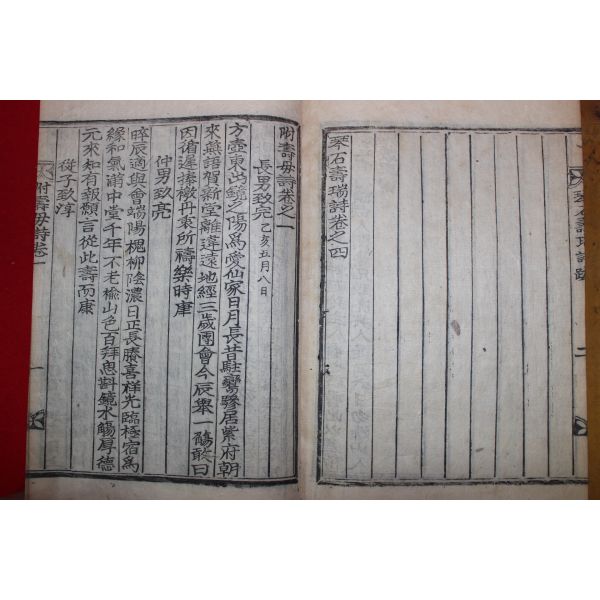 琴石壽瑞詩跋 二
琴石壽瑞詩卷之四
附壽母詩卷之一
長男致完 乙亥五月八日
方壺東出鏡之陽爲愛仙家日月長昔駐鸞驂居紫府朝
來燕語賀新堂離違遠地經三歲團會今辰擧一觴敢曰
因循遲捧檄丹衷所禱樂時康
仲男致亮
晬辰適與會端陽槐柳陰濃日正長勝喜祥光臨極宿爲
緣和氣滿中堂千年不老楡山色百拜恩斟鏡水觴厚德
元來知有報願言從此壽而康
從子致淳
附壽母詩卷一 一